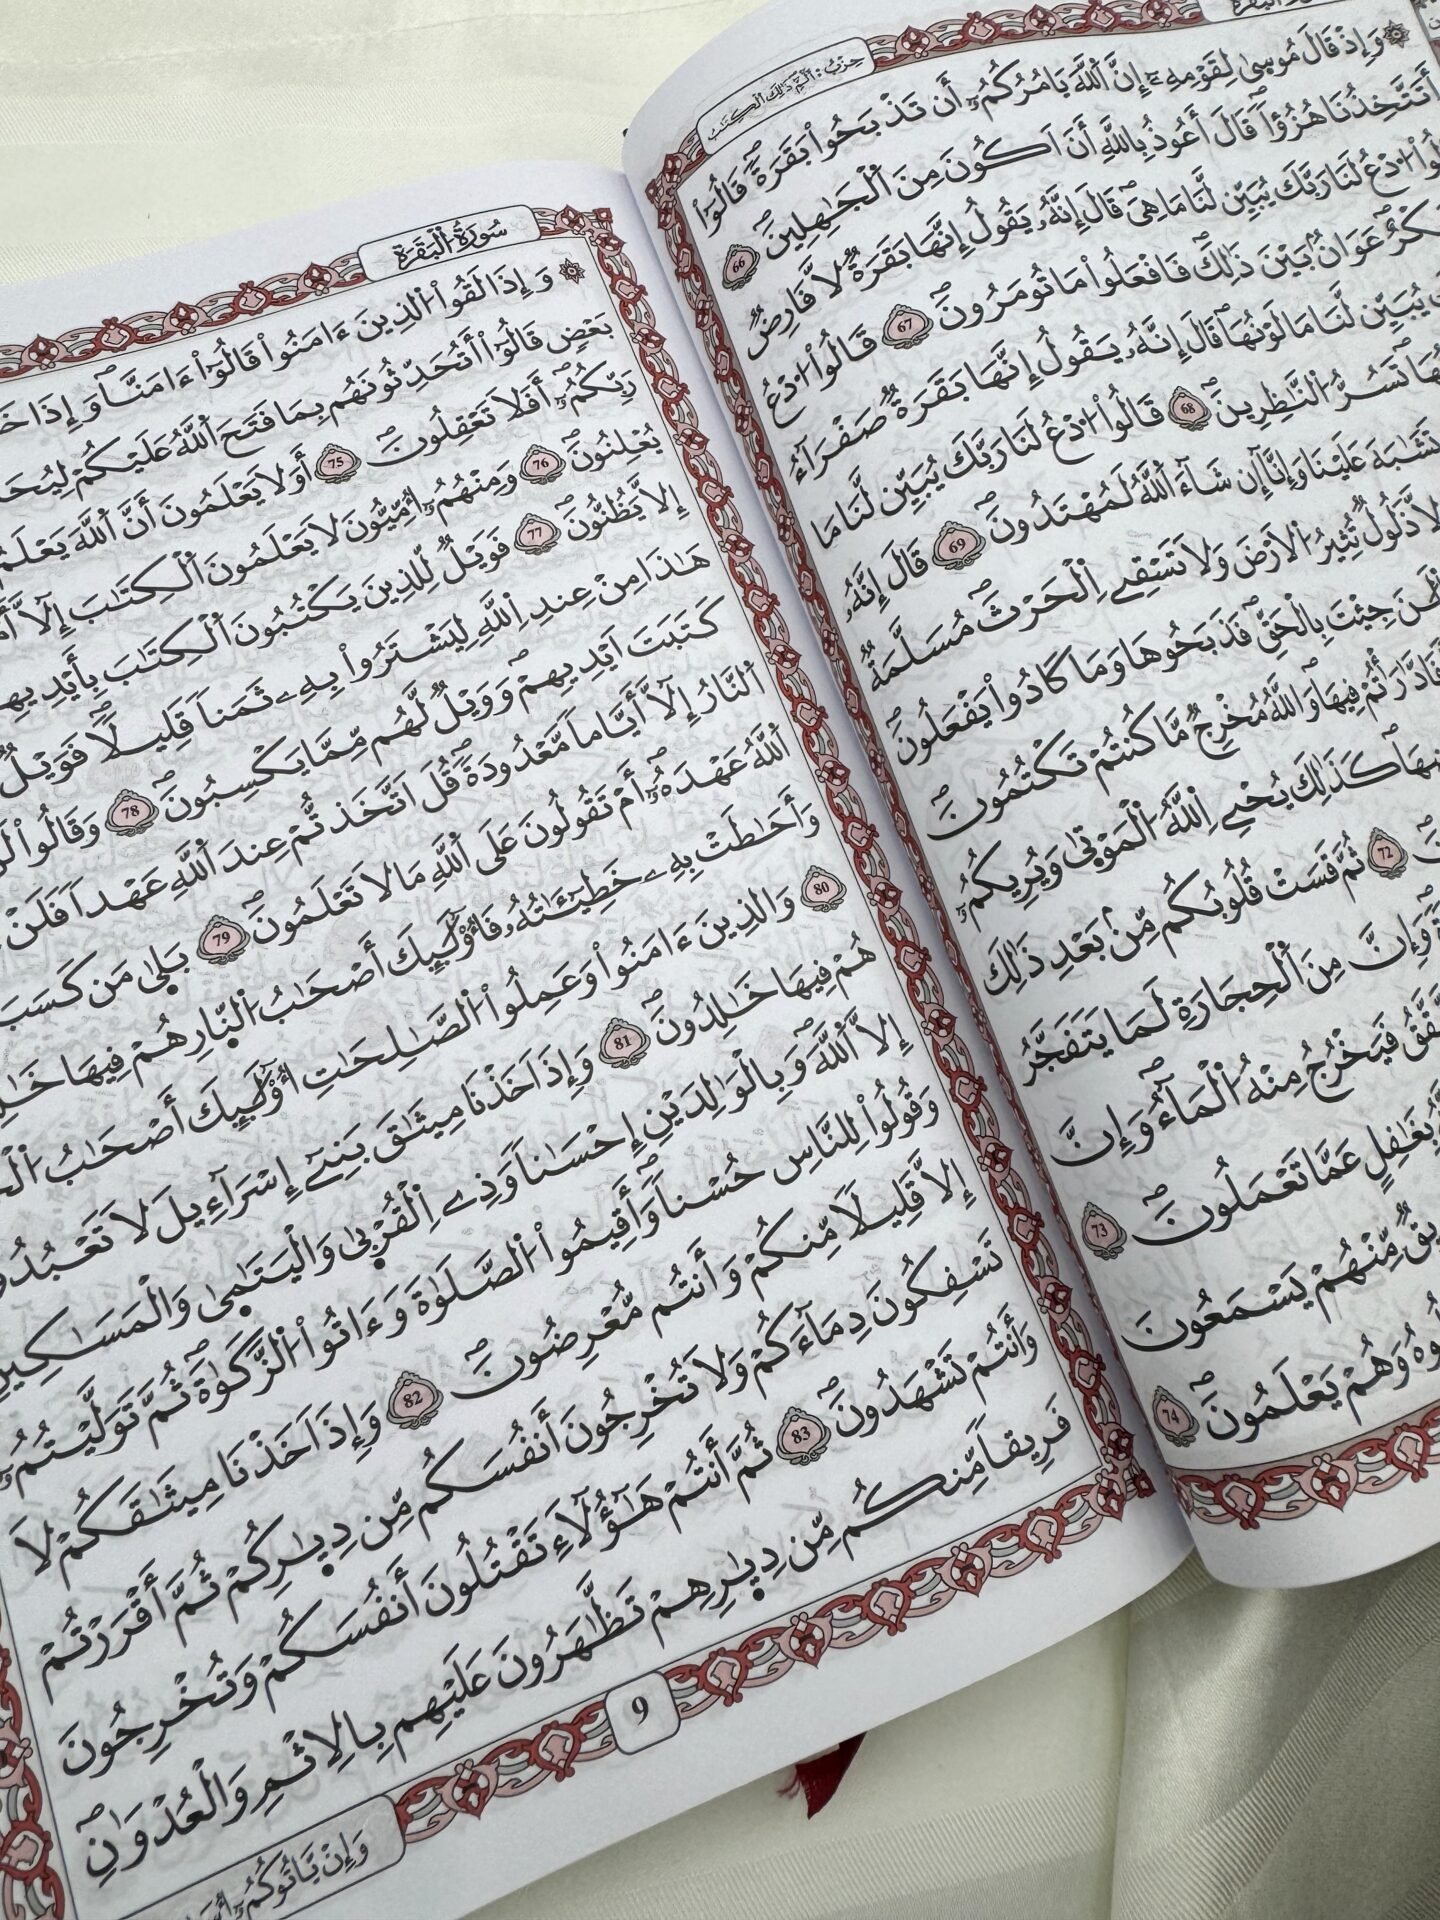 حِزْبُ: أَلَٓمِّٓ ذَٰلِكَ اَلْكِتَٰبُ
وَإِذْ قَالَ مُوسىٰ لِقَوْمِهِۦٓ إِنَّ اَللَّهَ يَامُرُكُمُۥٓ أَن تَذْبَحُواْ بَقَرَةٗ قَالُوٓاْ
أَتَتَّخِذُنَا هُزُؤاٗ قَالَ أَعُوذُ بِاللَّهِ أَنَ اَكُونَ مِنَ اَلْجَٰهِلِينَ 66
اُدْعُ لَنَا رَبَّكَ يُبَيِّن لَّنَا مَا هِيَ قَالَ إِنَّهُۥ يَقُولُ إِنَّهَا بَقَرَةٞ لَّا فَارِضٞ
عَوَانُۢ بَيْنَ ذَٰلِكَ فَافْعَلُواْ مَا تُومَرُونَ 67 قَالُواْ اُدْعُ
يُبَيِّن لَّنَا مَا لَوْنُهَا قَالَ إِنَّهُۥ يَقُولُ إِنَّهَا بَقَرَةٞ صَفْرَآءُ
تَسُرُّ اُلنَّٰظِرِينَ 68 قَالُواْ اُدْعُ لَنَا رَبَّكَ يُبَيِّن لَّنَا مَا
تَشَٰبَهَ عَلَيْنَا وَإِنَّآ إِن شَآءَ اَللَّهُ لَمُهْتَدُونَ 69 قَالَ إِنَّهُۥ
لَّا ذَلُولٞ تُثِيرُ اُلَارْضَ وَلَا تَسْقِے اِلْحَرْثَ مُسَلَّمَةٞ
جِئْتَ بِالْحَقِّ فَذَبَحُوهَا وَمَا كَادُواْ يَفْعَلُونَ
فَادَّٰرَٰٔتُمْ فِيهَا وَاللَّهُ مُخْرِجٞ مَّا كُنتُمْ تَكْتُمُونَ
كَذَٰلِكَ يُحْيِ اِللَّهُ اُلْمَوْتىٰ وَيُرِيكُمُۥٓ
72 ثُمَّ قَسَتْ قُلُوبُكُم مِّنۢ بَعْدِ ذَٰلِكَ
وَإِنَّ مِنَ اَلْحِجَارَةِ لَمَا يَتَفَجَّرُ
فَيَخْرُجُ مِنْهُ اُلْمَآءُ وَإِنَّ
بِغَٰفِلٍ عَمَّا تَعْمَلُونَ 73
مِّنْهُمْ يَسْمَعُونَ
وَهُمْ يَعْلَمُونَ 74
سُورَةُ اُلْبَقَرَةِ
وَإِذَا لَقُواْ اُلذِينَ ءَامَنُواْ قَالُوٓاْ ءَامَنَّا وَإِذَا
بَعْضٖ قَالُوٓاْ أَتُحَدِّثُونَهُم بِمَا فَتَحَ اَللَّهُ عَلَيْكُمْ
رَبِّكُمُۥٓ أَفَلَا تَعْقِلُونَ 75 أَوَلَا يَعْلَمُونَ أَنَّ اَللَّهَ يَعْلَمُ
يُعْلِنُونَ 76 وَمِنْهُمُۥٓ أُمِّيُّونَ لَا يَعْلَمُونَ اَلْكِتَٰبَ إِلَّآ
إِلَّا يَظُنُّونَ 77 فَوَيْلٞ لِّلذِينَ يَكْتُبُونَ اَلْكِتَٰبَ بِأَيْدِيهِمْ
هَٰذَا مِنْ عِندِ اِللَّهِ لِيَشْتَرُواْ بِهِۦ ثَمَناٗ قَلِيلاٗ فَوَيْلٞ
كَتَبَتَ اَيْدِيهِمْ وَوَيْلٞ لَّهُم مِّمَّا يَكْسِبُونَ 78 وَقَالُواْ
اَلنَّارُ إِلَّآ أَيَّاماٗ مَّعْدُودَةٗ قُلَ اَتَّخَذتُّمْ عِندَ اَللَّهِ عَهْداٗ فَلَنْ
اَللَّهُ عَهْدَهُۥٓ أَمْ تَقُولُونَ عَلَى اَللَّهِ مَا لَا تَعْلَمُونَ 79 بَلىٰ مَن كَسَبَ
وَأَحَٰطَتْ بِهِۦ خَطِيٓـَٰٔتُهُۥ فَأُوْلَٰٓئِكَ أَصْحَٰبُ اُلنّ۪ارِ هُمْ فِيهَا
80 وَالذِينَ ءَامَنُواْ وَعَمِلُواْ اُلصَّٰلِحَٰتِ أُوْلَٰٓئِكَ أَصْحَٰبُ
هُمْ فِيهَا خَٰلِدُونَ 81 وَإِذَ اَخَذْنَا مِيثَٰقَ بَنِےٓ إِسْرَآءِيلَ لَا تَعْبُدُونَ
إِلَّا اَللَّهَ وَبِالْوَٰلِدَيْنِ إِحْسَاناٗ وَذِے اِلْقُرْبىٰ وَالْيَتَٰمىٰ وَالْمَسَٰكِينِ
وَقُولُواْ لِلنَّاسِ حُسْناٗ وَأَقِيمُواْ اُلصَّلَوٰةَ وَءَاتُواْ اُلزَّكَوٰةَ ثُمَّ تَوَلَّيْتُمُۥٓ
إِلَّا قَلِيلاٗ مِّنكُمْ وَأَنتُم مُّعْرِضُونَ 82 وَإِذَ اَخَذْنَا مِيثَٰقَكُمْ لَا
تَسْفِكُونَ دِمَآءَكُمْ وَلَا تُخْرِجُونَ أَنفُسَكُم مِّن دِيٰ۪رِكُمْ ثُمَّ أَقْرَرْتُمْ
وَأَنتُمْ تَشْهَدُونَ 83 ثُمَّ أَنتُمْ هَٰٓؤُلَآءِ تَقْتُلُونَ أَنفُسَكُمْ وَتُخْرِجُونَ
فَرِيقاٗ مِّنكُم مِّن دِيٰ۪رِهِمْ تَظَّٰهَرُونَ عَلَيْهِم بِالِاثْمِ وَالْعُدْوَٰنِ
9
وَإِنْ يَّاتُوكُمُۥٓ